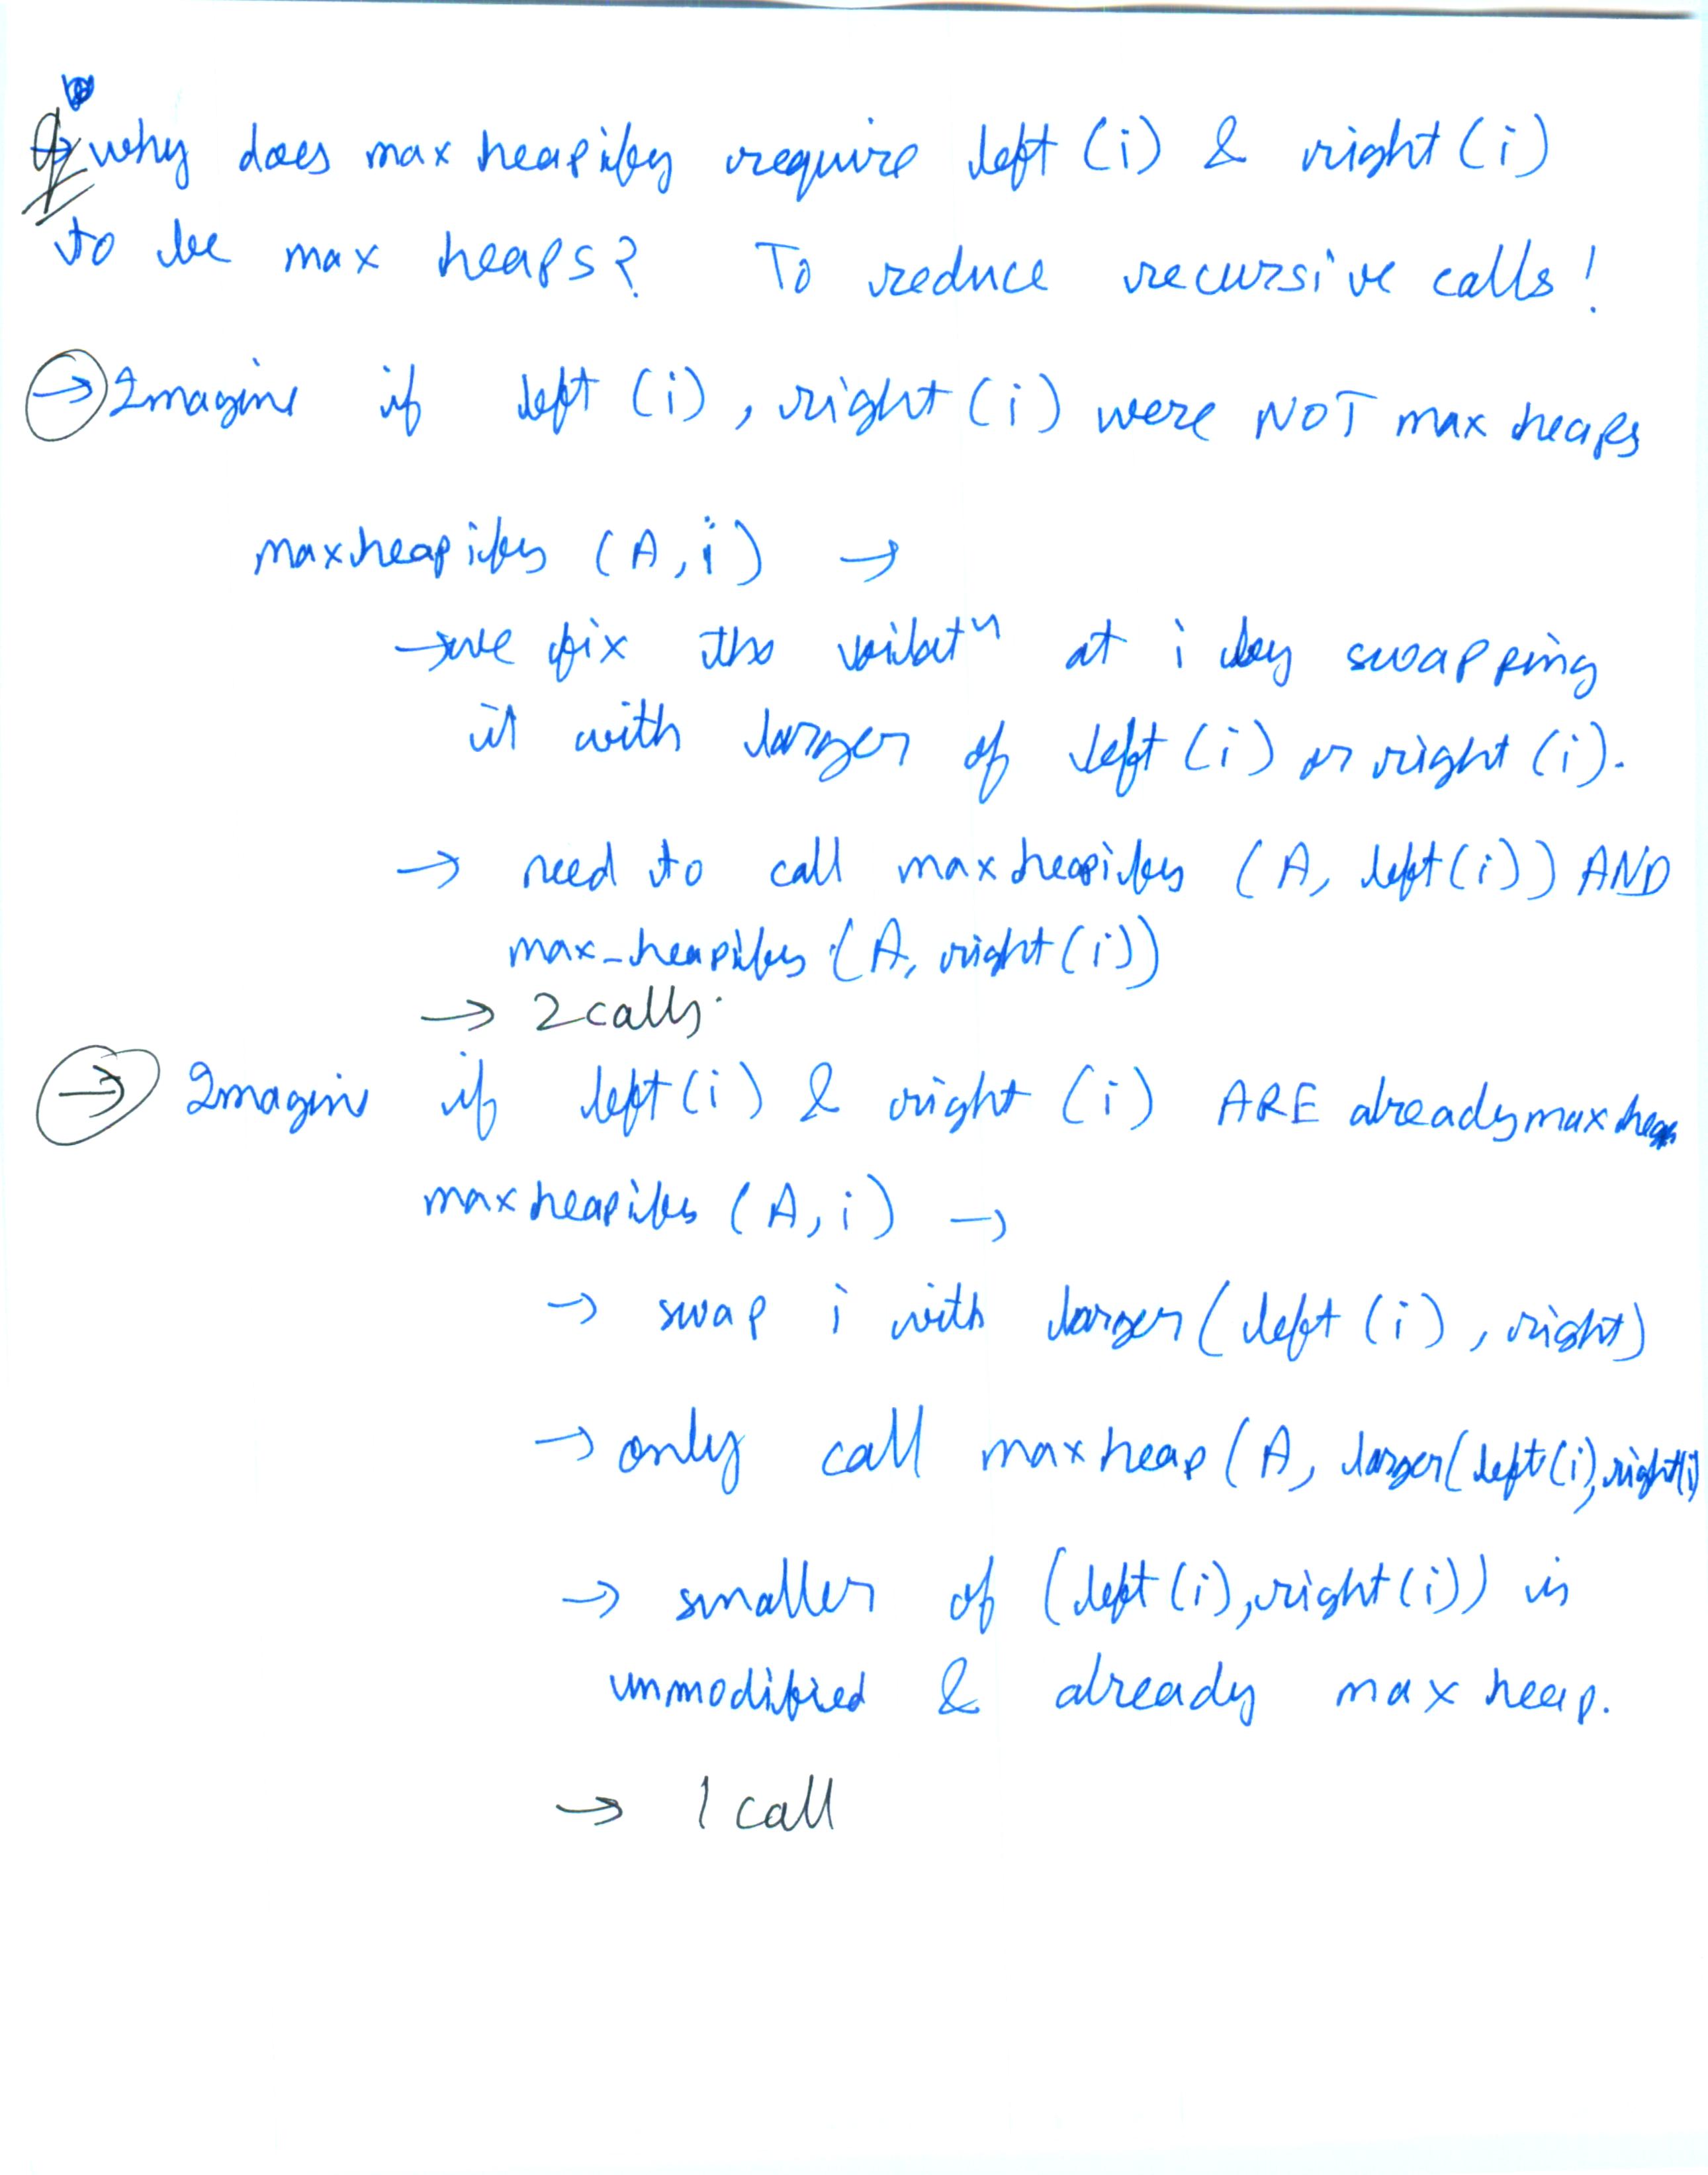 Q, why does max heapify require left (i) & right (i)
to be max heaps? To reduce recursive calls!
→ Imagine if left (i), right (i) were NOT max heaps
maxheapify (A, i) →
→ we fix the violatⁿ at i by swapping
it with larger of left (i) or right (i).
→ need to call maxheapify (A, left(i)) AND
max_heapify (A, right(i))
→ 2 calls.
→ Imagine if left(i) & right (i) ARE already max heap
maxheapify (A, i) →
→ swap i with larger (left (i), right)
→ only call maxheap (A, larger(left(i), right(i)
→ smaller of (left (i), right (i)) is
unmodified & already max heap.
→ 1 call